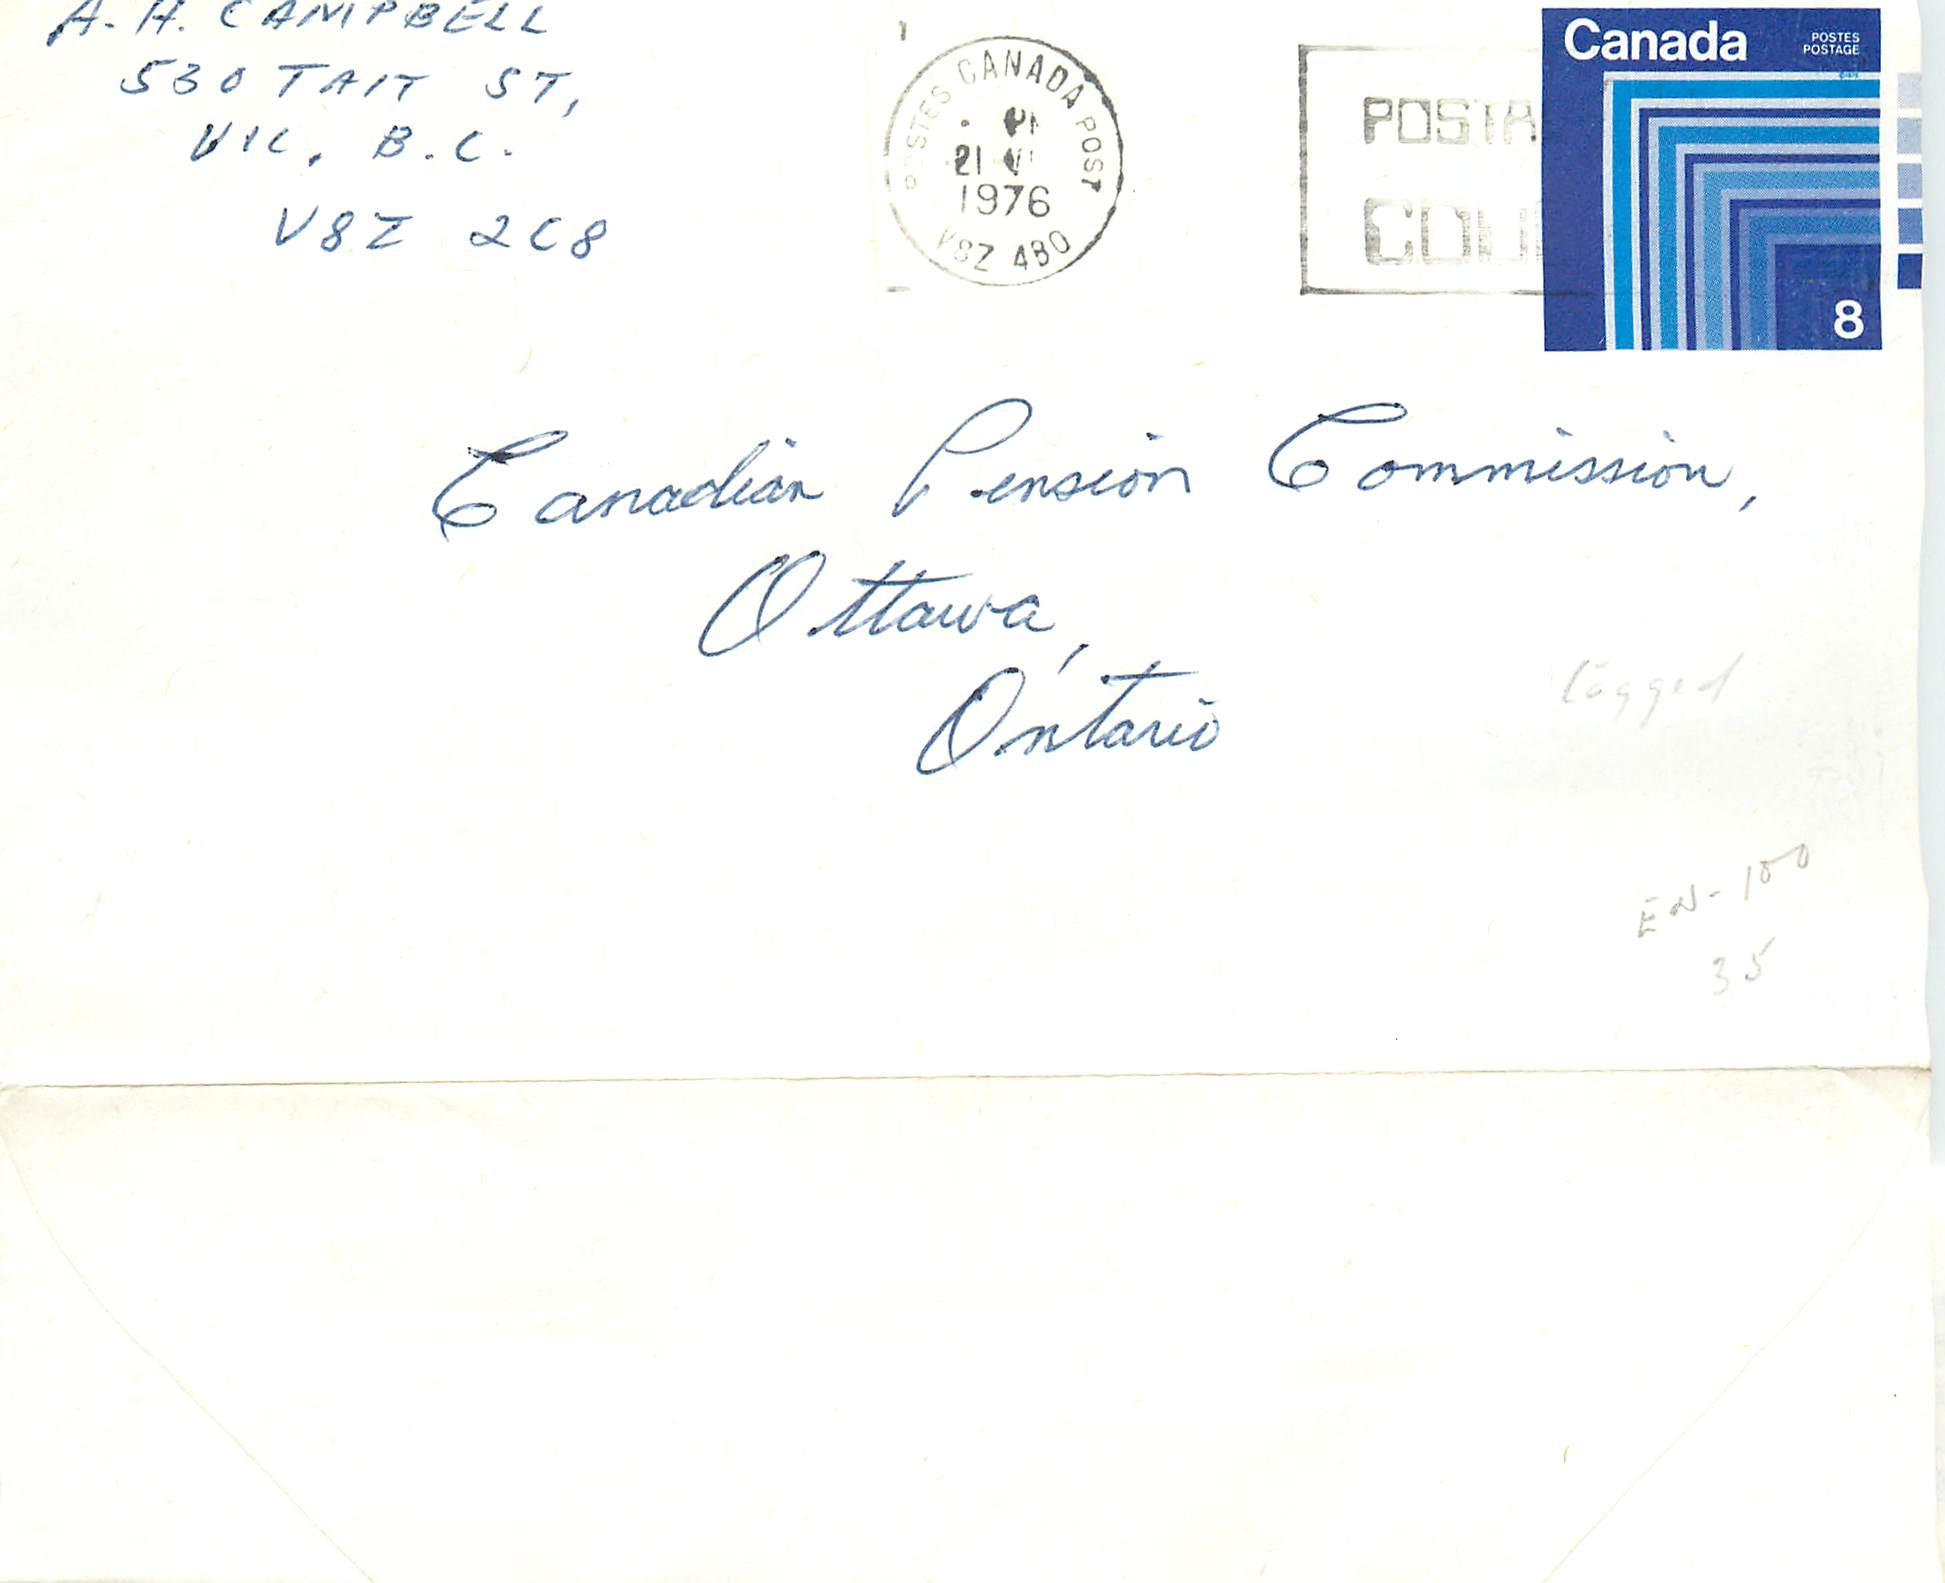 A. H. CAMPBELL
530 TAIT ST,
VIC, B.C.
V8Z 2C8
POSTES CANADA POST
PM
21 VI
1976
V8Z 4B0
POSTA
COU
Canada
POSTES
POSTAGE
8
Canadian Pension Commission,
Ottawa,
Ontario
tagged
EN-100
35